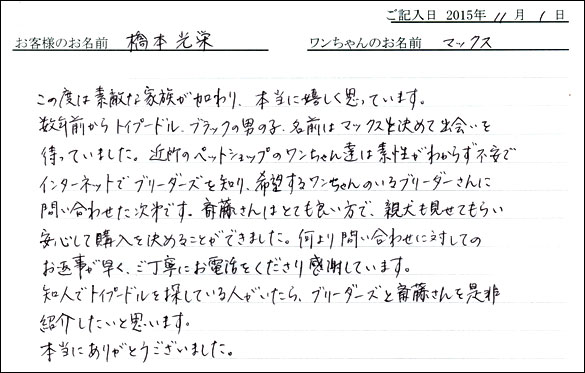 ご記入日 2015年 11月 1日
お客様のお名前 橋本光栄 ワンちゃんのお名前 マックス
この度は素敵な家族が加わり、本当に嬉しく思っています。
数年前からトイプードル、ブラックの男の子、名前はマックスと決めて出会いを
待っていました。近所のペットショップのワンちゃん達は素性がわからず不安で
インターネットでブリーダーズを知り、希望するワンちゃんのいるブリーダーさんに
問い合わせた次第です。斉藤さんはとても良い方で、親犬も見せてもらい
安心して購入を決めることができました。何より問い合わせに対しての
お返事が早く、ご丁寧にお電話をくださり感謝しています。
知人でトイプードルを探している人がいたら、ブリーダーズと斉藤さんを是非
紹介したいと思います。
本当にありがとうございました。